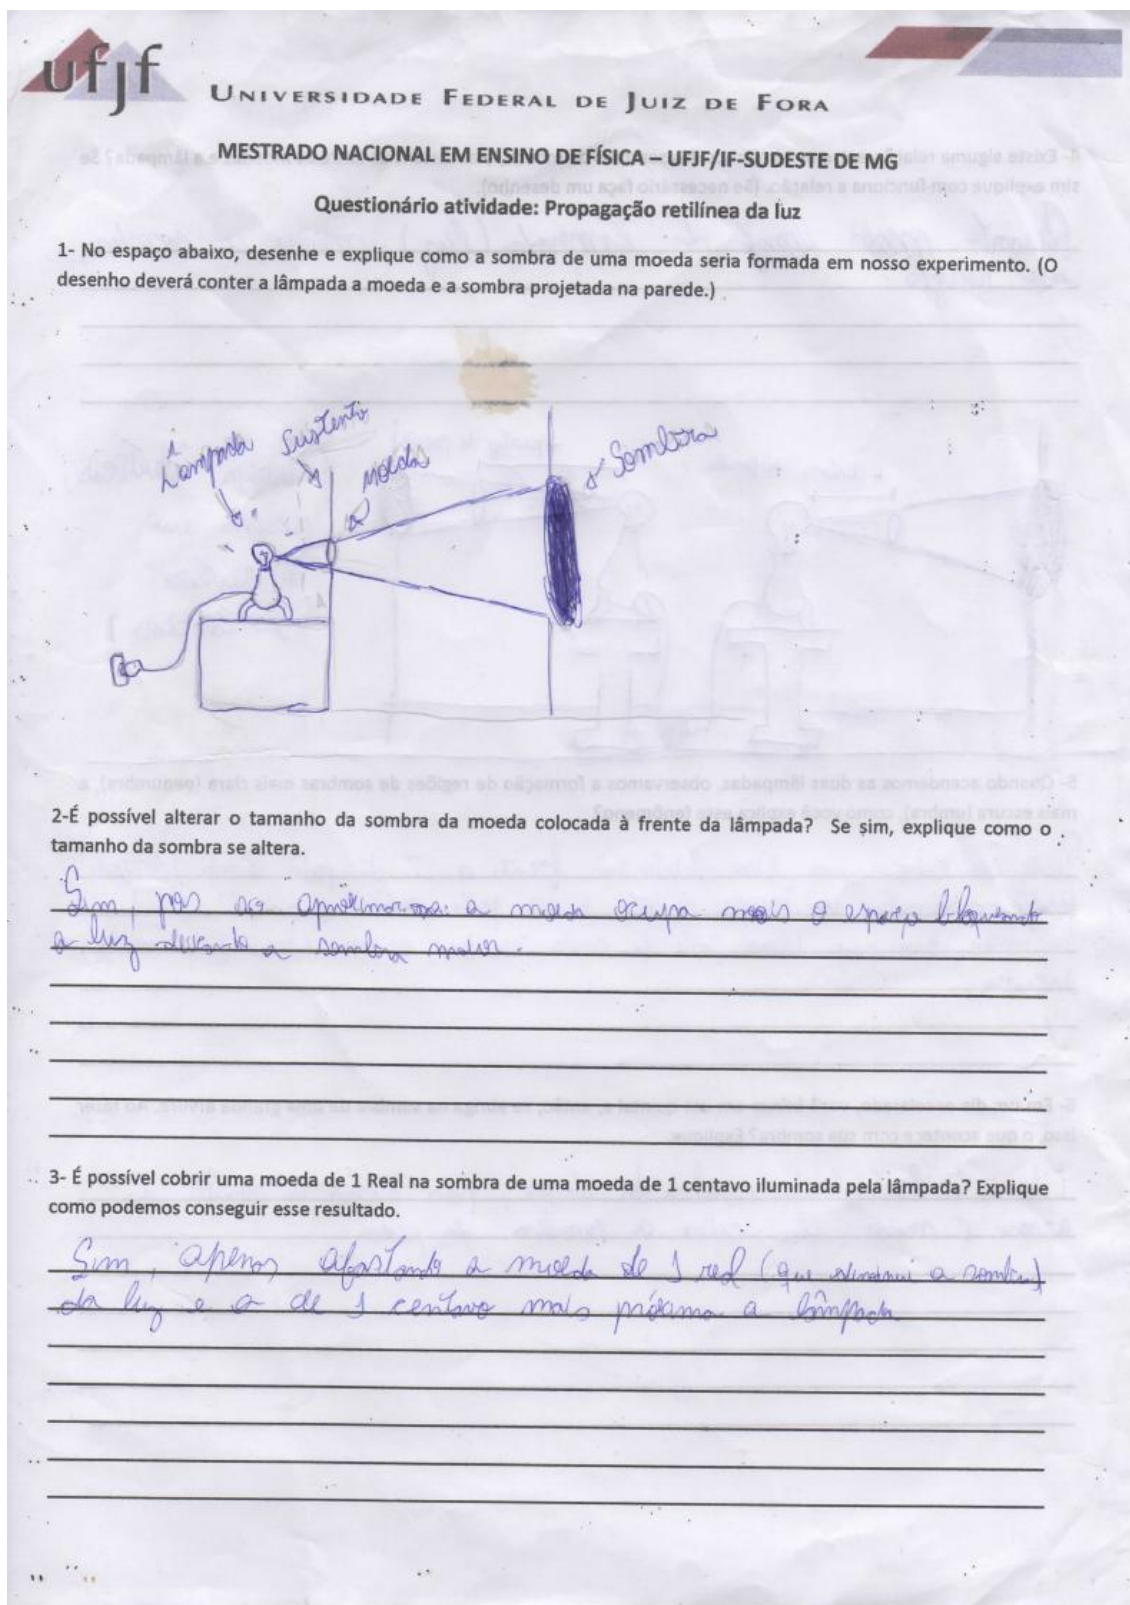 ufjf
UNIVERSIDADE FEDERAL DE JUIZ DE FORA
MESTRADO NACIONAL EM ENSINO DE FÍSICA – UFJF/IF-SUDESTE DE MG
Questionário atividade: Propagação retilínea da luz
1- No espaço abaixo, desenhe e explique como a sombra de uma moeda seria formada em nosso experimento. (O
desenho deverá conter a lâmpada a moeda e a sombra projetada na parede.)
Lâmpada
Sustento
Moeda
Sombra
2-É possível alterar o tamanho da sombra da moeda colocada à frente da lâmpada? Se sim, explique como o
tamanho da sombra se altera.
Sim, pois a moeda ocupa mais o espaço bloqueando
a luz deixando a sombra maior.
3- É possível cobrir uma moeda de 1 Real na sombra de uma moeda de 1 centavo iluminada pela lâmpada? Explique
como podemos conseguir esse resultado.
Sim, apenas afastando a moeda de 1 real (que diminui a sombra)
da luz e a de 1 centavo mais próxima a lâmpada